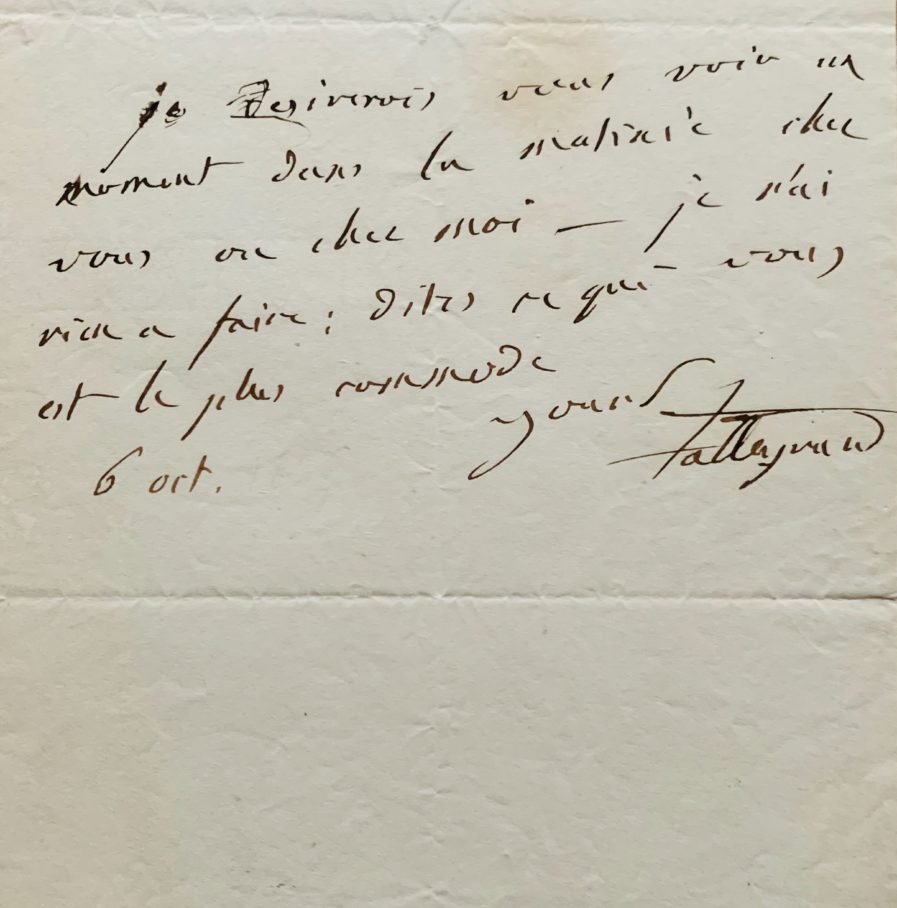 je Desirerois vous voir un
moment dans la matinée chez
vous ou chez moi — je n'ai
rien a faire ; dites ce qui vous
est le plus commode
yours Talleyrand
6 oct.